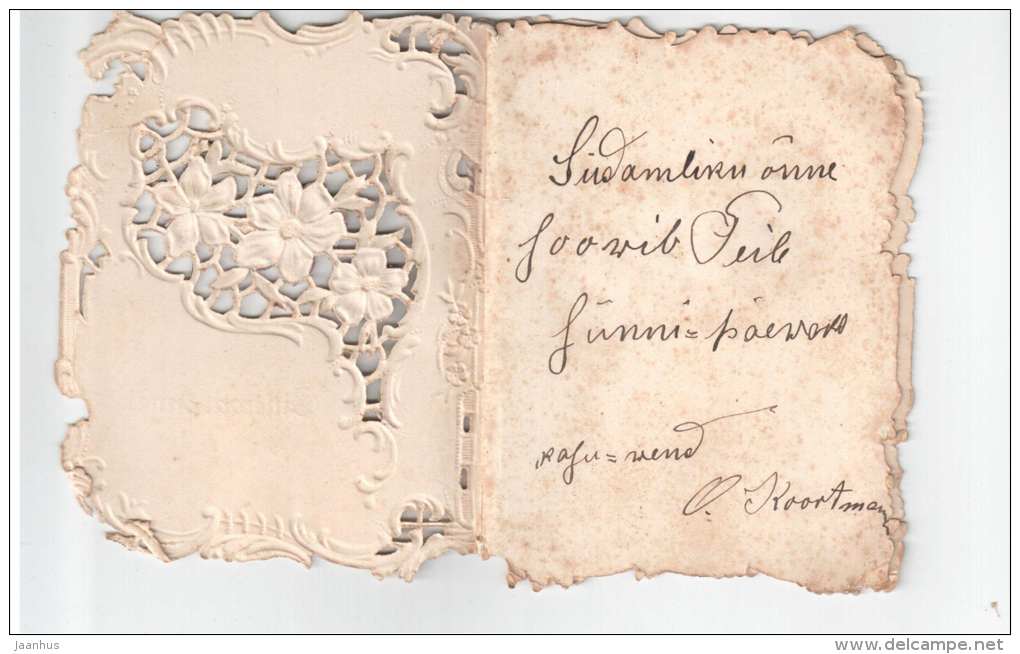 Südamliku õnne
soowib Teile
Sünni=päewaks
wend
O. Koortman
jaanhus
www.delcampe.net